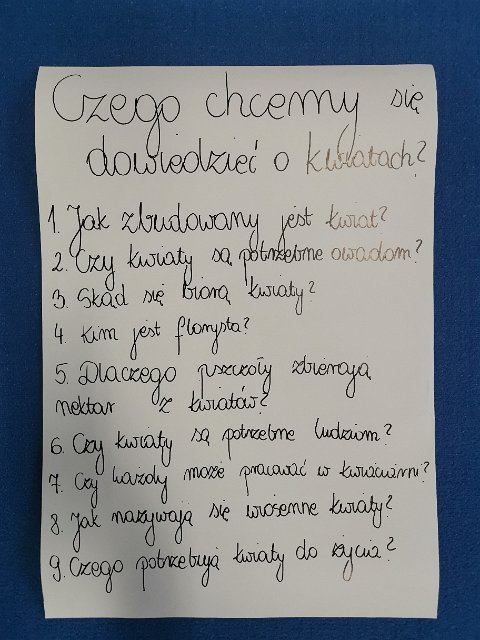 Czego chcemy się
dowiedzieć o kwiatach?
1. Jak zbudowany jest kwiat?
2. Czy kwiaty są potrzebne owadom?
3. Skąd się biorą kwiaty?
4. Kim jest florysta?
5. Dlaczego pszczoły zbierają
nektar z kwiatów?
6. Czy kwiaty są potrzebne ludziom?
7. Czy każdy może pracować w kwiaciarni?
8. Jak nazywają się wiosenne kwiaty?
9. Czego potrzebują kwiaty do życia?